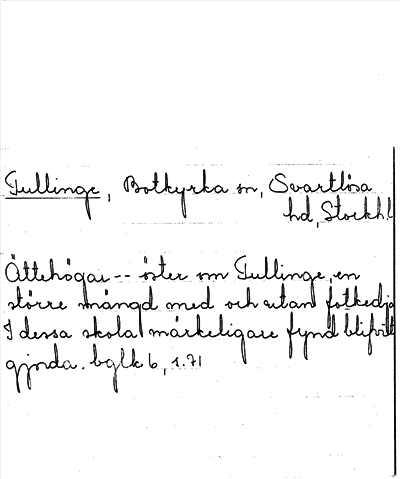 Tullinge, Botkyrka sn, Svartlösa
hd, Stockh. l
Ättehögar -- öster om Tullinge, en
större mängd med och utan fotkedja
I dessa skola märkeligare fynd blifvit
gjorda. bglk 6, s. 71